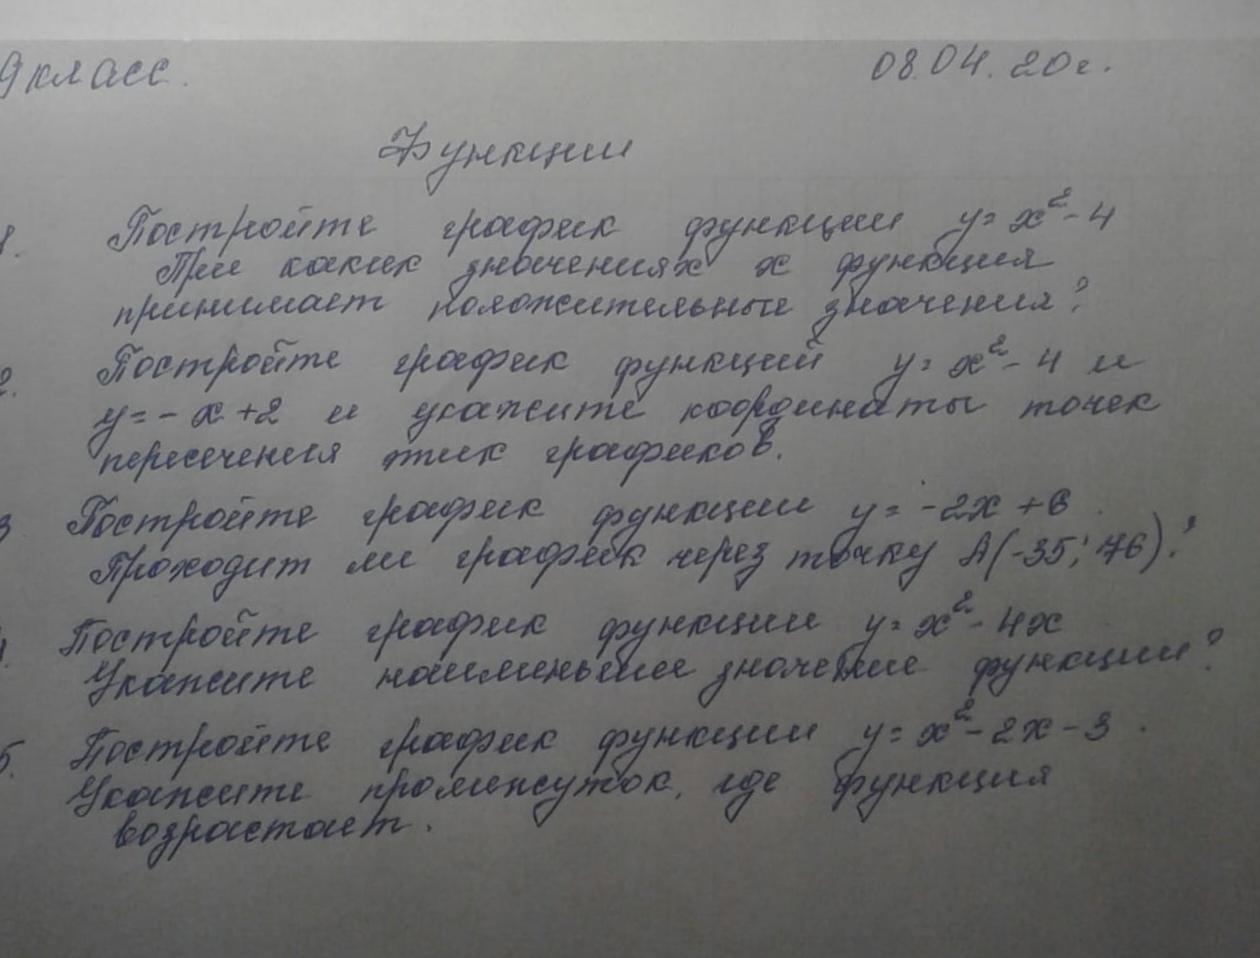 9 класс.
08.04.20г.
Функции
1. Постройте график функции y = x² - 4
При каких значениях x функция
принимает положительные значения?
2. Постройте график функций y = x² - 4 и
y = - x + 2 и укажите координаты точек
пересечения этих графиков.
3 Постройте график функции y = -2x + 6.
Проходит ли график через точку A(-35; 76)?
4. Постройте график функции y = x² - 4x
Укажите наименьшее значение функции?
5. Постройте график функции y = x² - 2x - 3.
Укажите промежуток, где функция
возрастает.